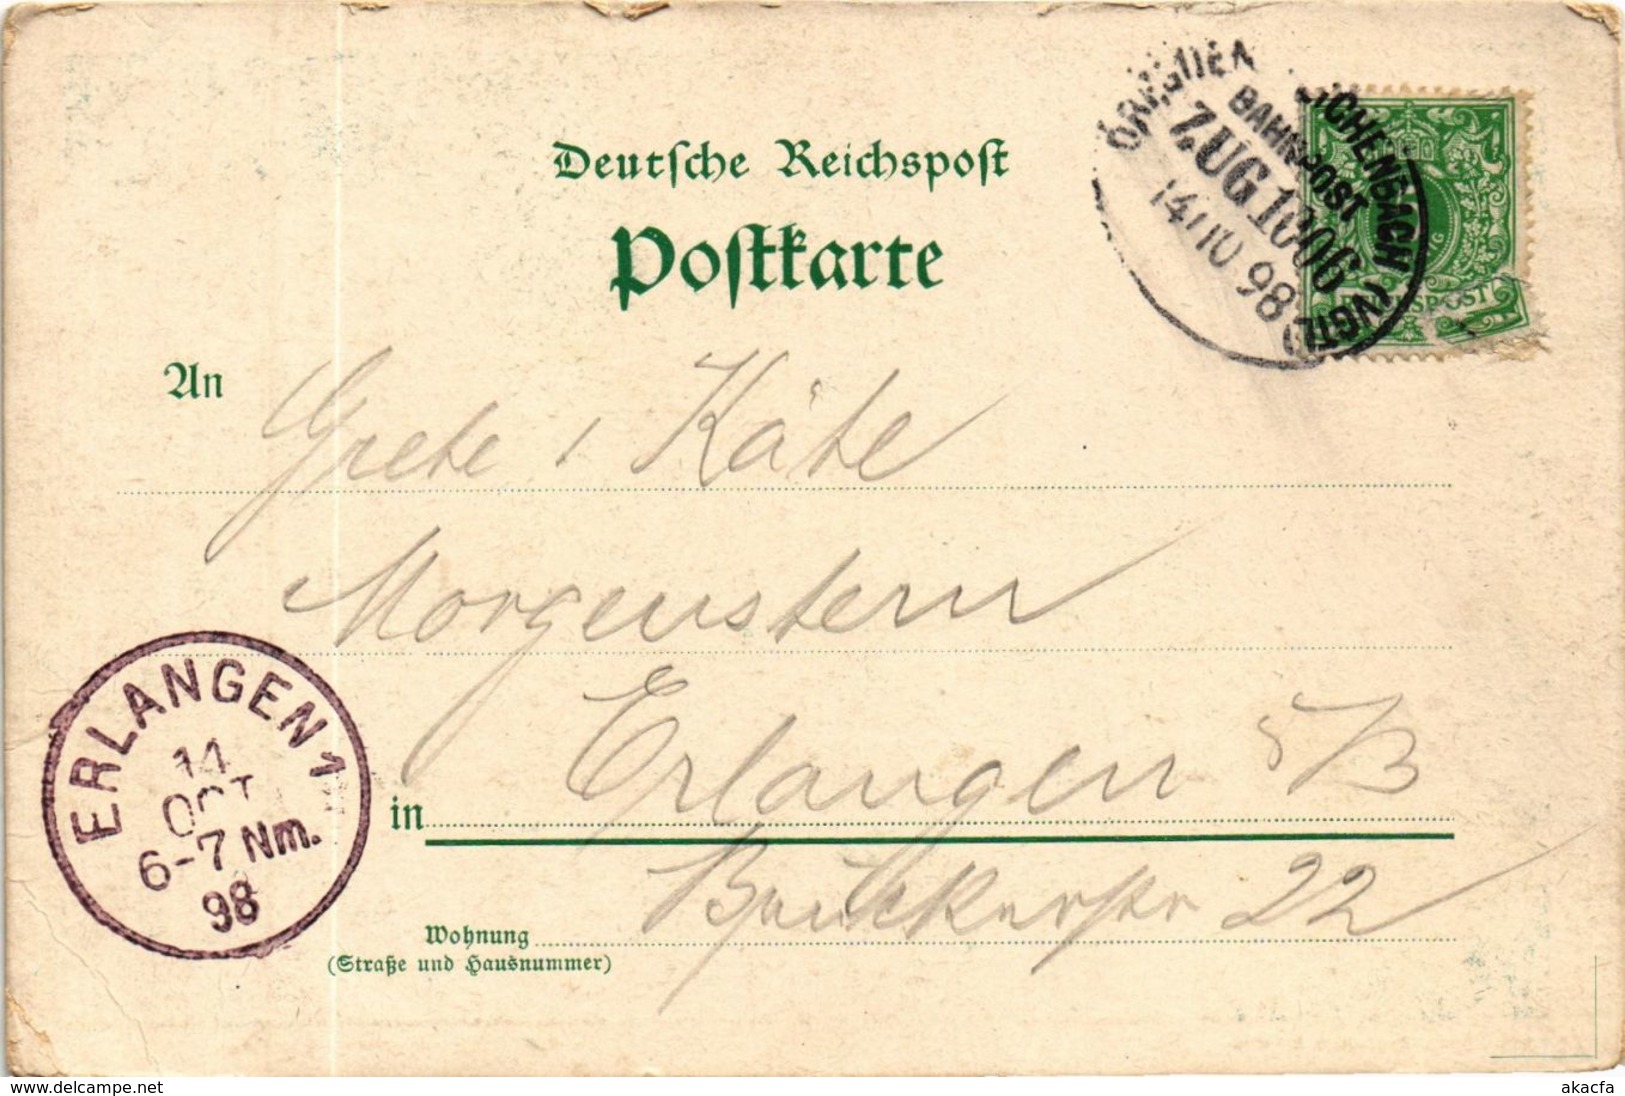 Deutsche Reichspost
Postkarte
BAHNPOST
ZUG 1006
14/10 98
An Grete u Käte
Morgenstern
in Erlangen i/B
ERLANGEN 1
14
OCT
6-7 Nm.
98
Wohnung
(Straße und Hausnummer)
22
www.delcampe.net
akacfa